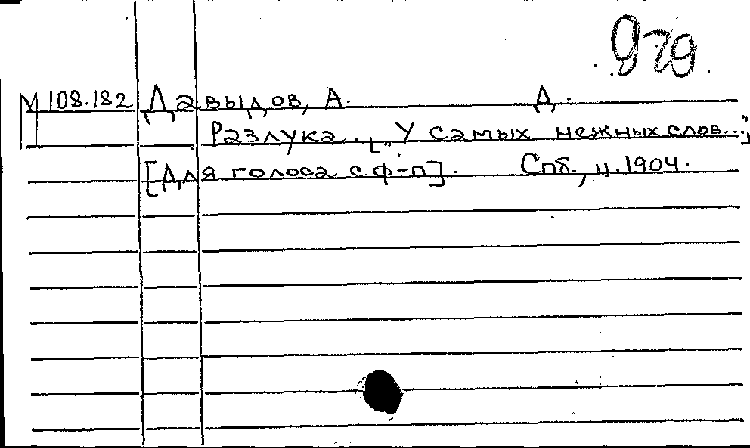 979.
М 108.182 Давыдов, А. Д.
Разлука. [„У самых нежных слов..."]
[Для голоса с ф-п]. Спб., ц. 1904.